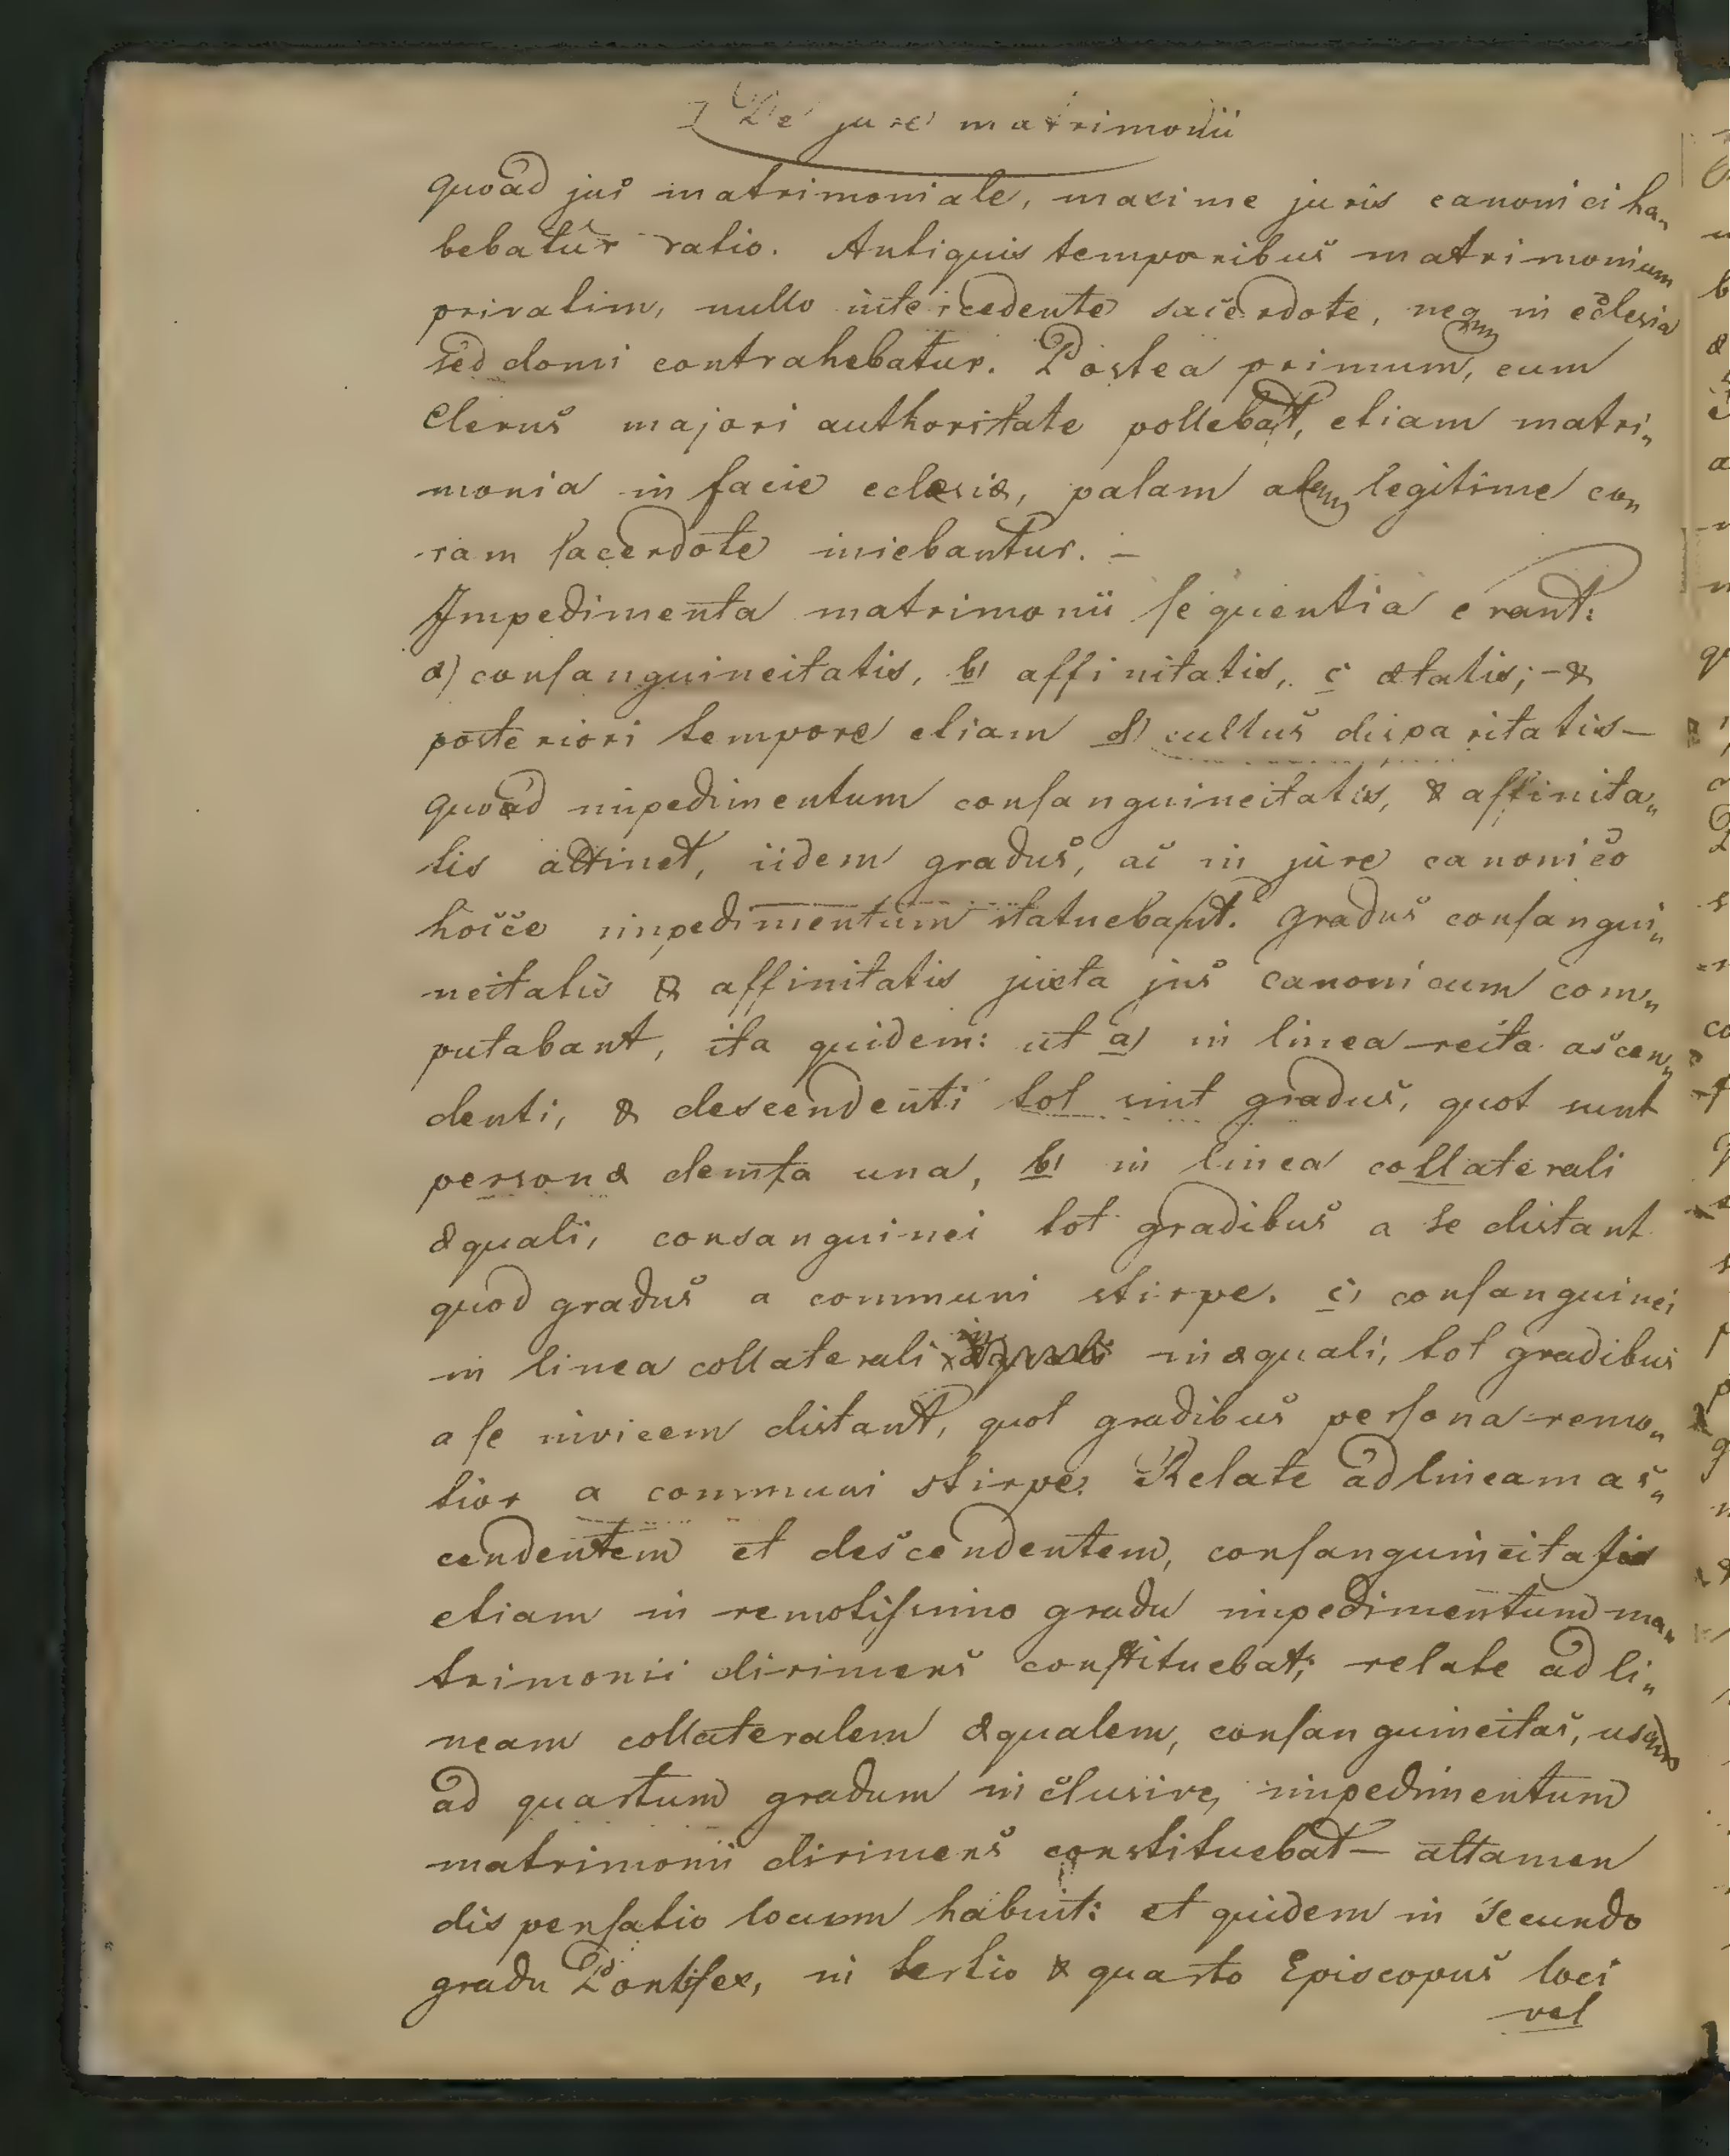 De jure matrimonii
quoad jus matrimoniale, maxime juris canonici ha„
bebatur ratio. Antiquis temporibus matrimonium
privatim, nullo intercedente sacerdote, neque in eclesia
sed domi contrahebatur. Postea primum, cum
Clerus majori authoritate pollebat, etiam matri„
monia in facie eclesiæ, palam atque legitime co„
ram sacerdote iniebantur. –
Impedimenta matrimonii sequentia erant:
a) consanguineitatis, b) affinitatis, c ætatis; – &
posteriori tempore etiam d) cultus disparitatis –
quoad impedimentum consanguineitatis, & affinita„
tis attinet, iidem gradus, ac in jure canonico
hocce impedimentum statuebant. Gradus consangui„
neitatis & affinitatis juxta jus canonicum com„
putabant, ita quidem: ut a) in linea recta ascen„
denti, & descendenti tot sint gradus, quot sunt
personæ demta una, b) in linea collaterali
æquali, consanguinei tot gradibus a se distant
quod gradus a communi stirpe. c) consanguinei
in linea collaterali inæquali, tot gradibus
a se invicem distant, quot gradibus persona remo„
tior a communi stirpe. Relate ad lineam as„
cendentem et descendentem, consanguineitatis
etiam in remotissimo gradu impedimentum ma„
trimonii dirimens constituebat; relate ad li„
neam collateralem æqualem, consanguineitas, usque
ad quartum gradum inclusive, impedimentum
matrimonii dirimens constituebat – attamen
dispensatio locum habuit: et quidem in secundo
gradu Pontifex, in tertio & quarto Episcopus loci
vel